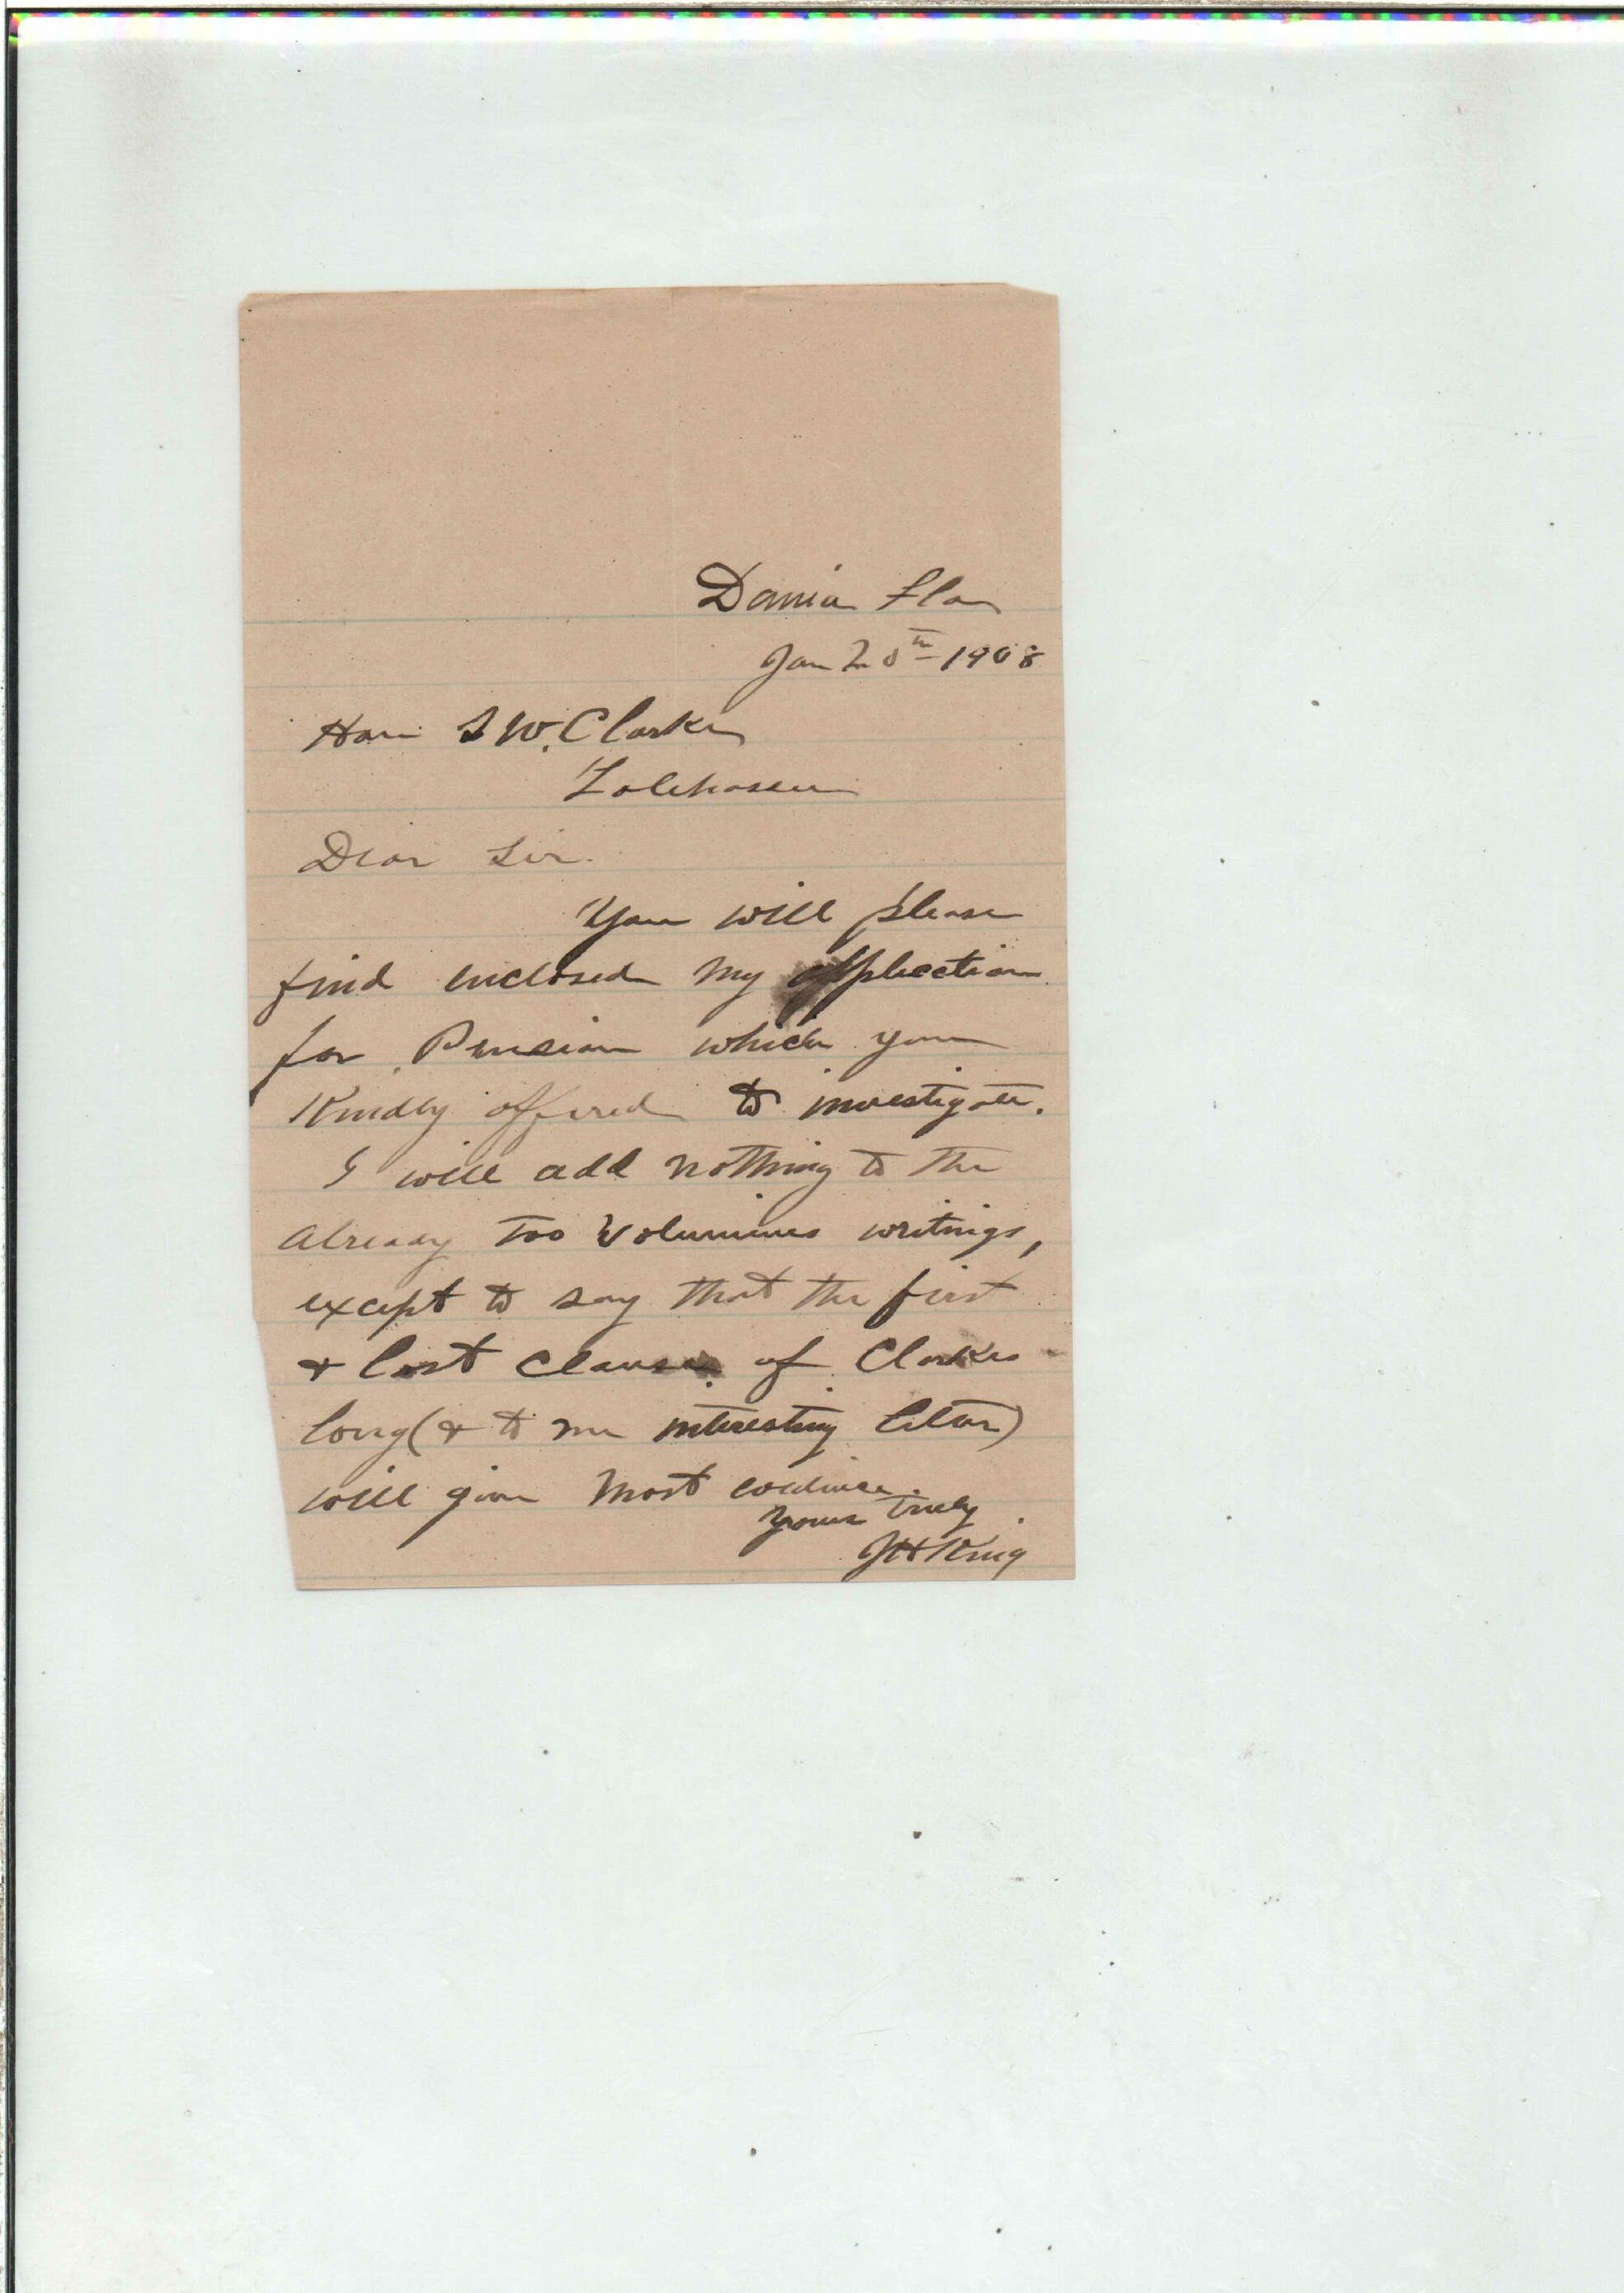 Dania Fla
Jan 20th - 1908
Hon W. Clarke
Talehassee
Dear Sir.
You will please
find enclosed my application
for Pension which you
Kindly offered to investigate.
I will add nothing to the
already too voluminus writings,
except to say that the first
& last clauses of Clarkes
long (& to me interesting letter)
will give most evidince.
Yours truly
JH King